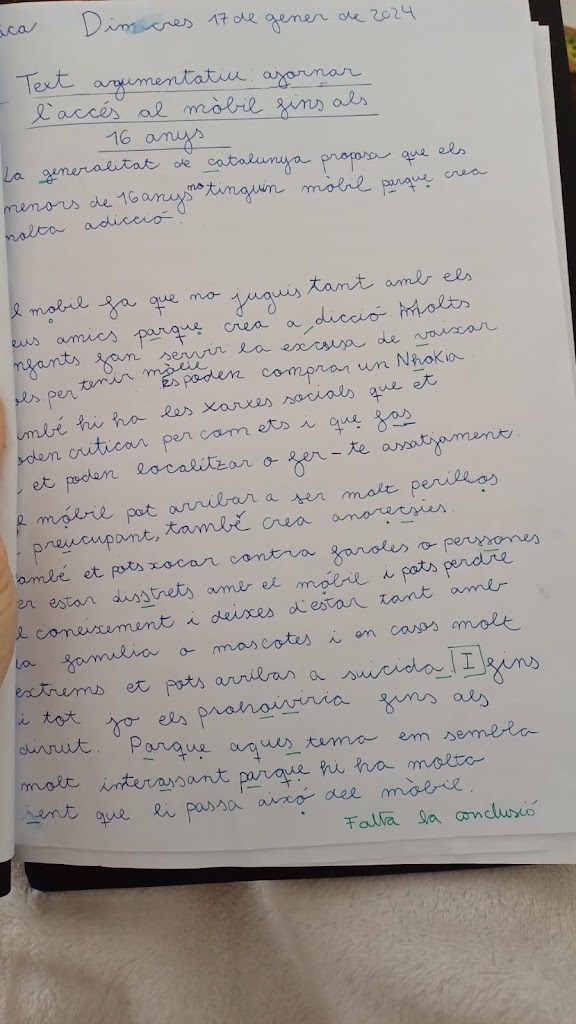 ica Dimecres 17 de gener de 2024
Text argumentatiu: ajornar
l'accés al mòbil fins als
16 anys
La generalitat de catalunya proposa que els
menors de 16 anys no tinguin mòbil parque crea
molta adicció.
l mobil fa que no juguis tant amb els
eus amics parque crea a dicció. Molts
nfants fan servir la excusa de vaixar
ols per tenir mòbil es poden comprar un Nhokia.
ambé hi ha les xarxes socials que et
oden criticar per com ets i que fas
i et poden localitzar o fer-te assatjament.
l móbil pot arribar a ser molt perillos
i preucupant, també crea anorecsies.
ambé et pots xocar contra faroles o perssones
er estar disstrets amb el móbil i pots perdre
l coneixement i deixes d'estar tant amb
la familia o mascotes i en casos molt
extrems et pots arribar a suicida I fins
i tot jo els prohoiviria fins als
divuit. Parque aques tema em sembla
molt interassant parque hi ha molta
jent que li passa aixó del mòbil.
Falta la conclusió